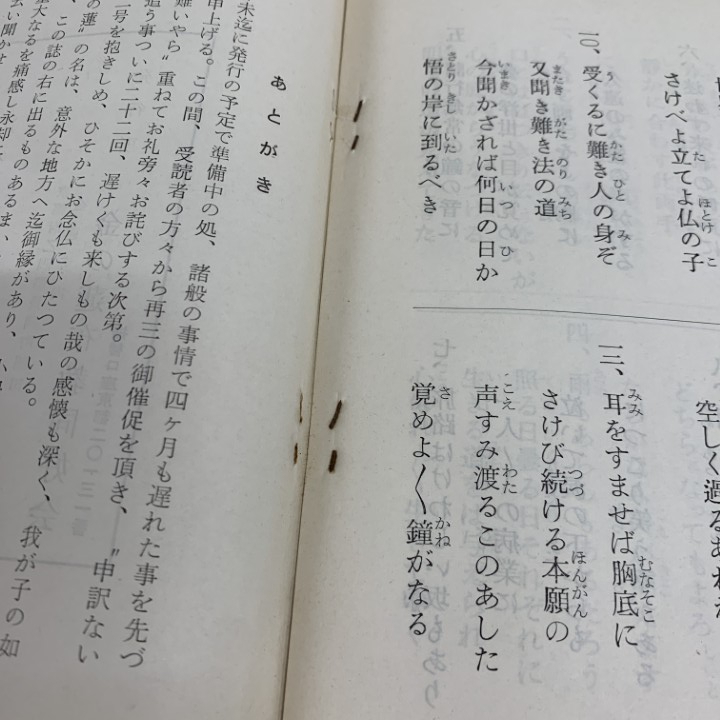 さけべよ立てよ仏の子
一〇、受くるに難き人の身ぞ
又聞き難き法の道
今聞かざれば何日の日か
悟の岸に到るべき
空しく過る
一三、耳をすませば胸底に
さけび続ける本願の
声すみ渡るこのあした
覚めよ〱鐘がなる
あとがき
末迄に発行の予定で準備中の処、諸般の事情で四ケ月も遅れた事を先づ
申上げる。この間、受読者の方々から再三の御催促を頂き、〝申訳ない
難いやら〟重ねてお礼旁々お詫びする次第。
追う事ついに二十二回、遅くも来しもの哉の感懐も深く、我が子の如
一号を抱きしめ、ひそかにお念仏にひたつている。
の蓮〟の名は、意外な地方へ迄御縁があり、
、この誌の右に出るものあるま
大なるを痛感し永却に
い聞かせ